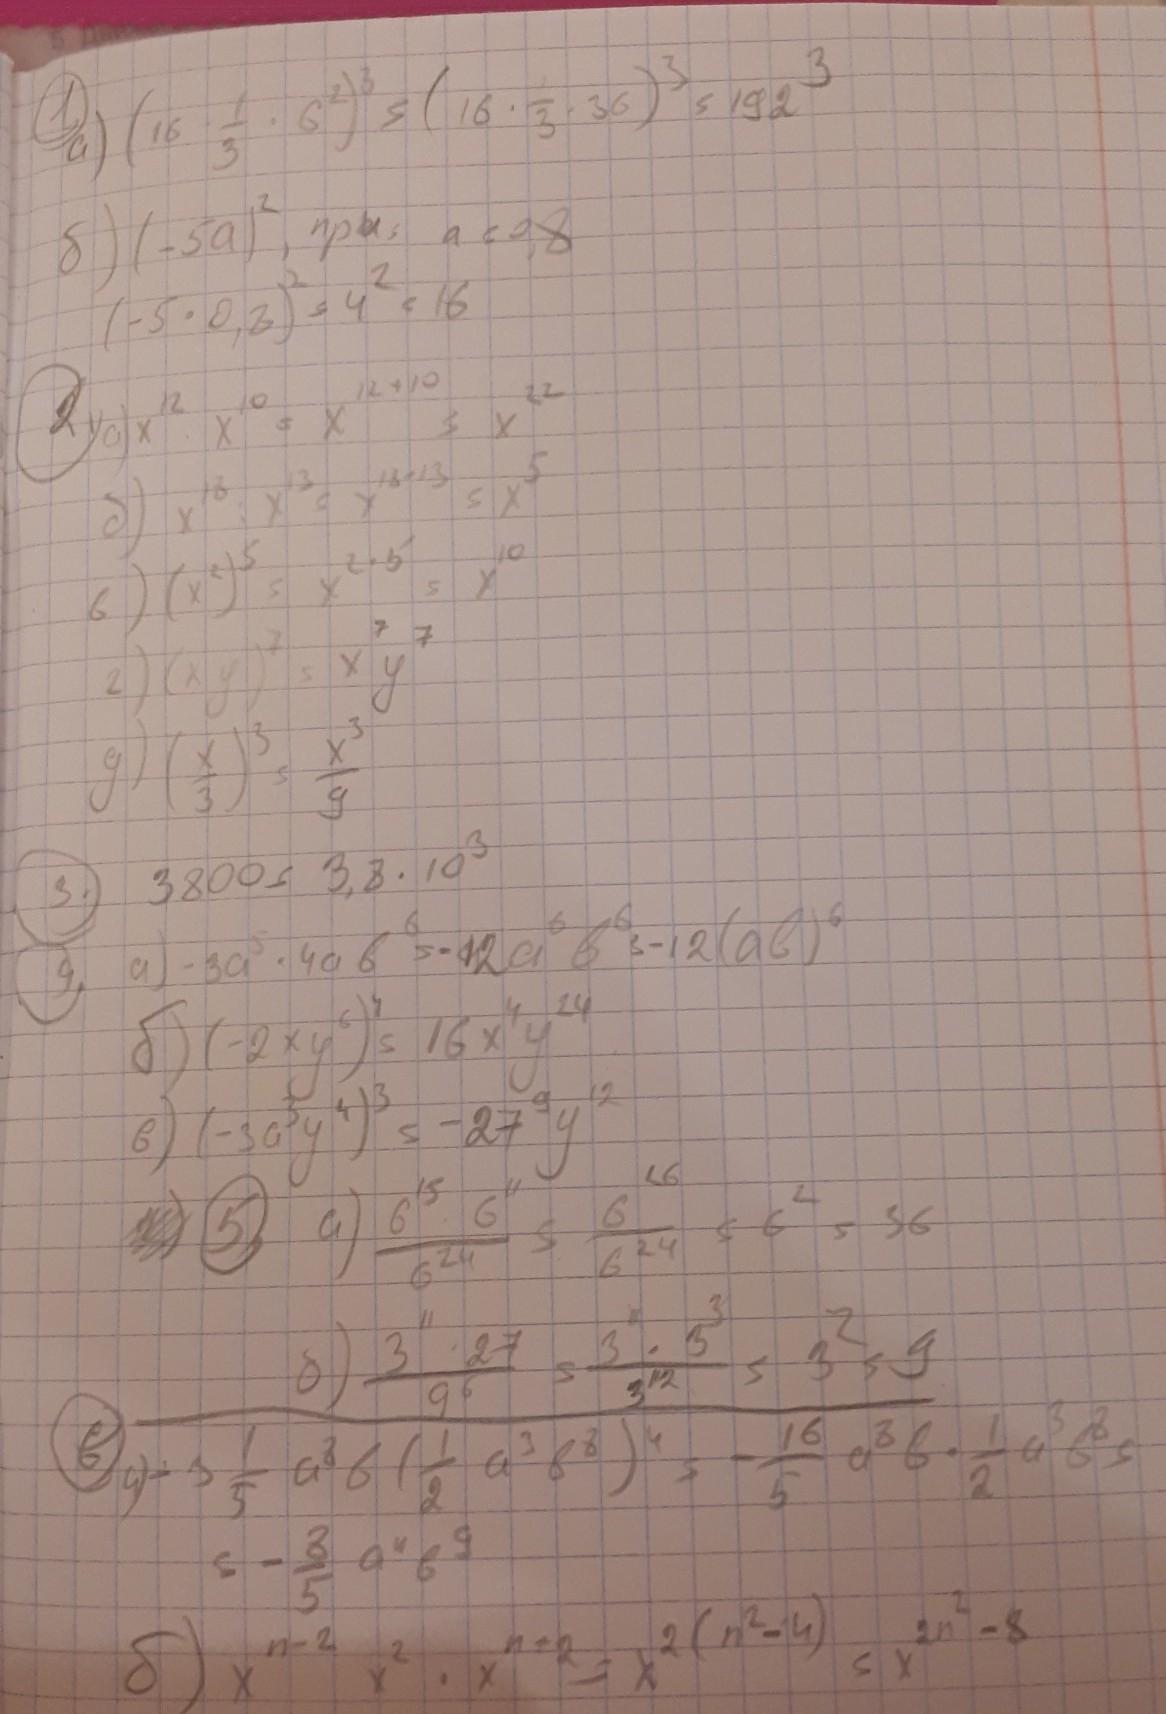 ① а) (16 · 1/3 · 6²)³ = (16 · 1/3 · 36)³ = 192³
б) (-5a)², при: a = 0,8
(-5 · 0,8)² = 4² = 16
② а) x¹² · x¹⁰ = x¹²⁺¹⁰ = x²²
б) x¹⁸ : x¹³ = x¹⁸⁻¹³ = x⁵
в) (x²)⁵ = x²·⁵ = x¹⁰
г) (xy)⁷ = x⁷y⁷
д) (x/3)³ = x³/9
③. 3800 = 3,8 · 10³
④. а) -3a⁵ · 4aб⁶ = -12a⁶б⁶ = -12(aб)⁶
б) (-2xy⁶)⁴ = 16x⁴y²⁴
в) (-3a³y⁴)³ = -27⁹y¹²
⑤ а) 6¹⁵ · 6¹¹/6²⁴ = 6²⁶/6²⁴ = 6² = 36
б) 3¹¹ · 27/9⁶ = 3¹¹ · 3³/3¹² = 3² = 9
⑥ а) -3 1/5 a⁸б (1/2 a³б⁸)⁴ = -16/5 a⁸б · 1/2 a³б⁸ =
= -8/5 a¹¹б⁹
б) xⁿ⁻² x² · xⁿ⁺² = x²⁽ⁿ²⁻⁴⁾ = x²ⁿ²⁻⁸